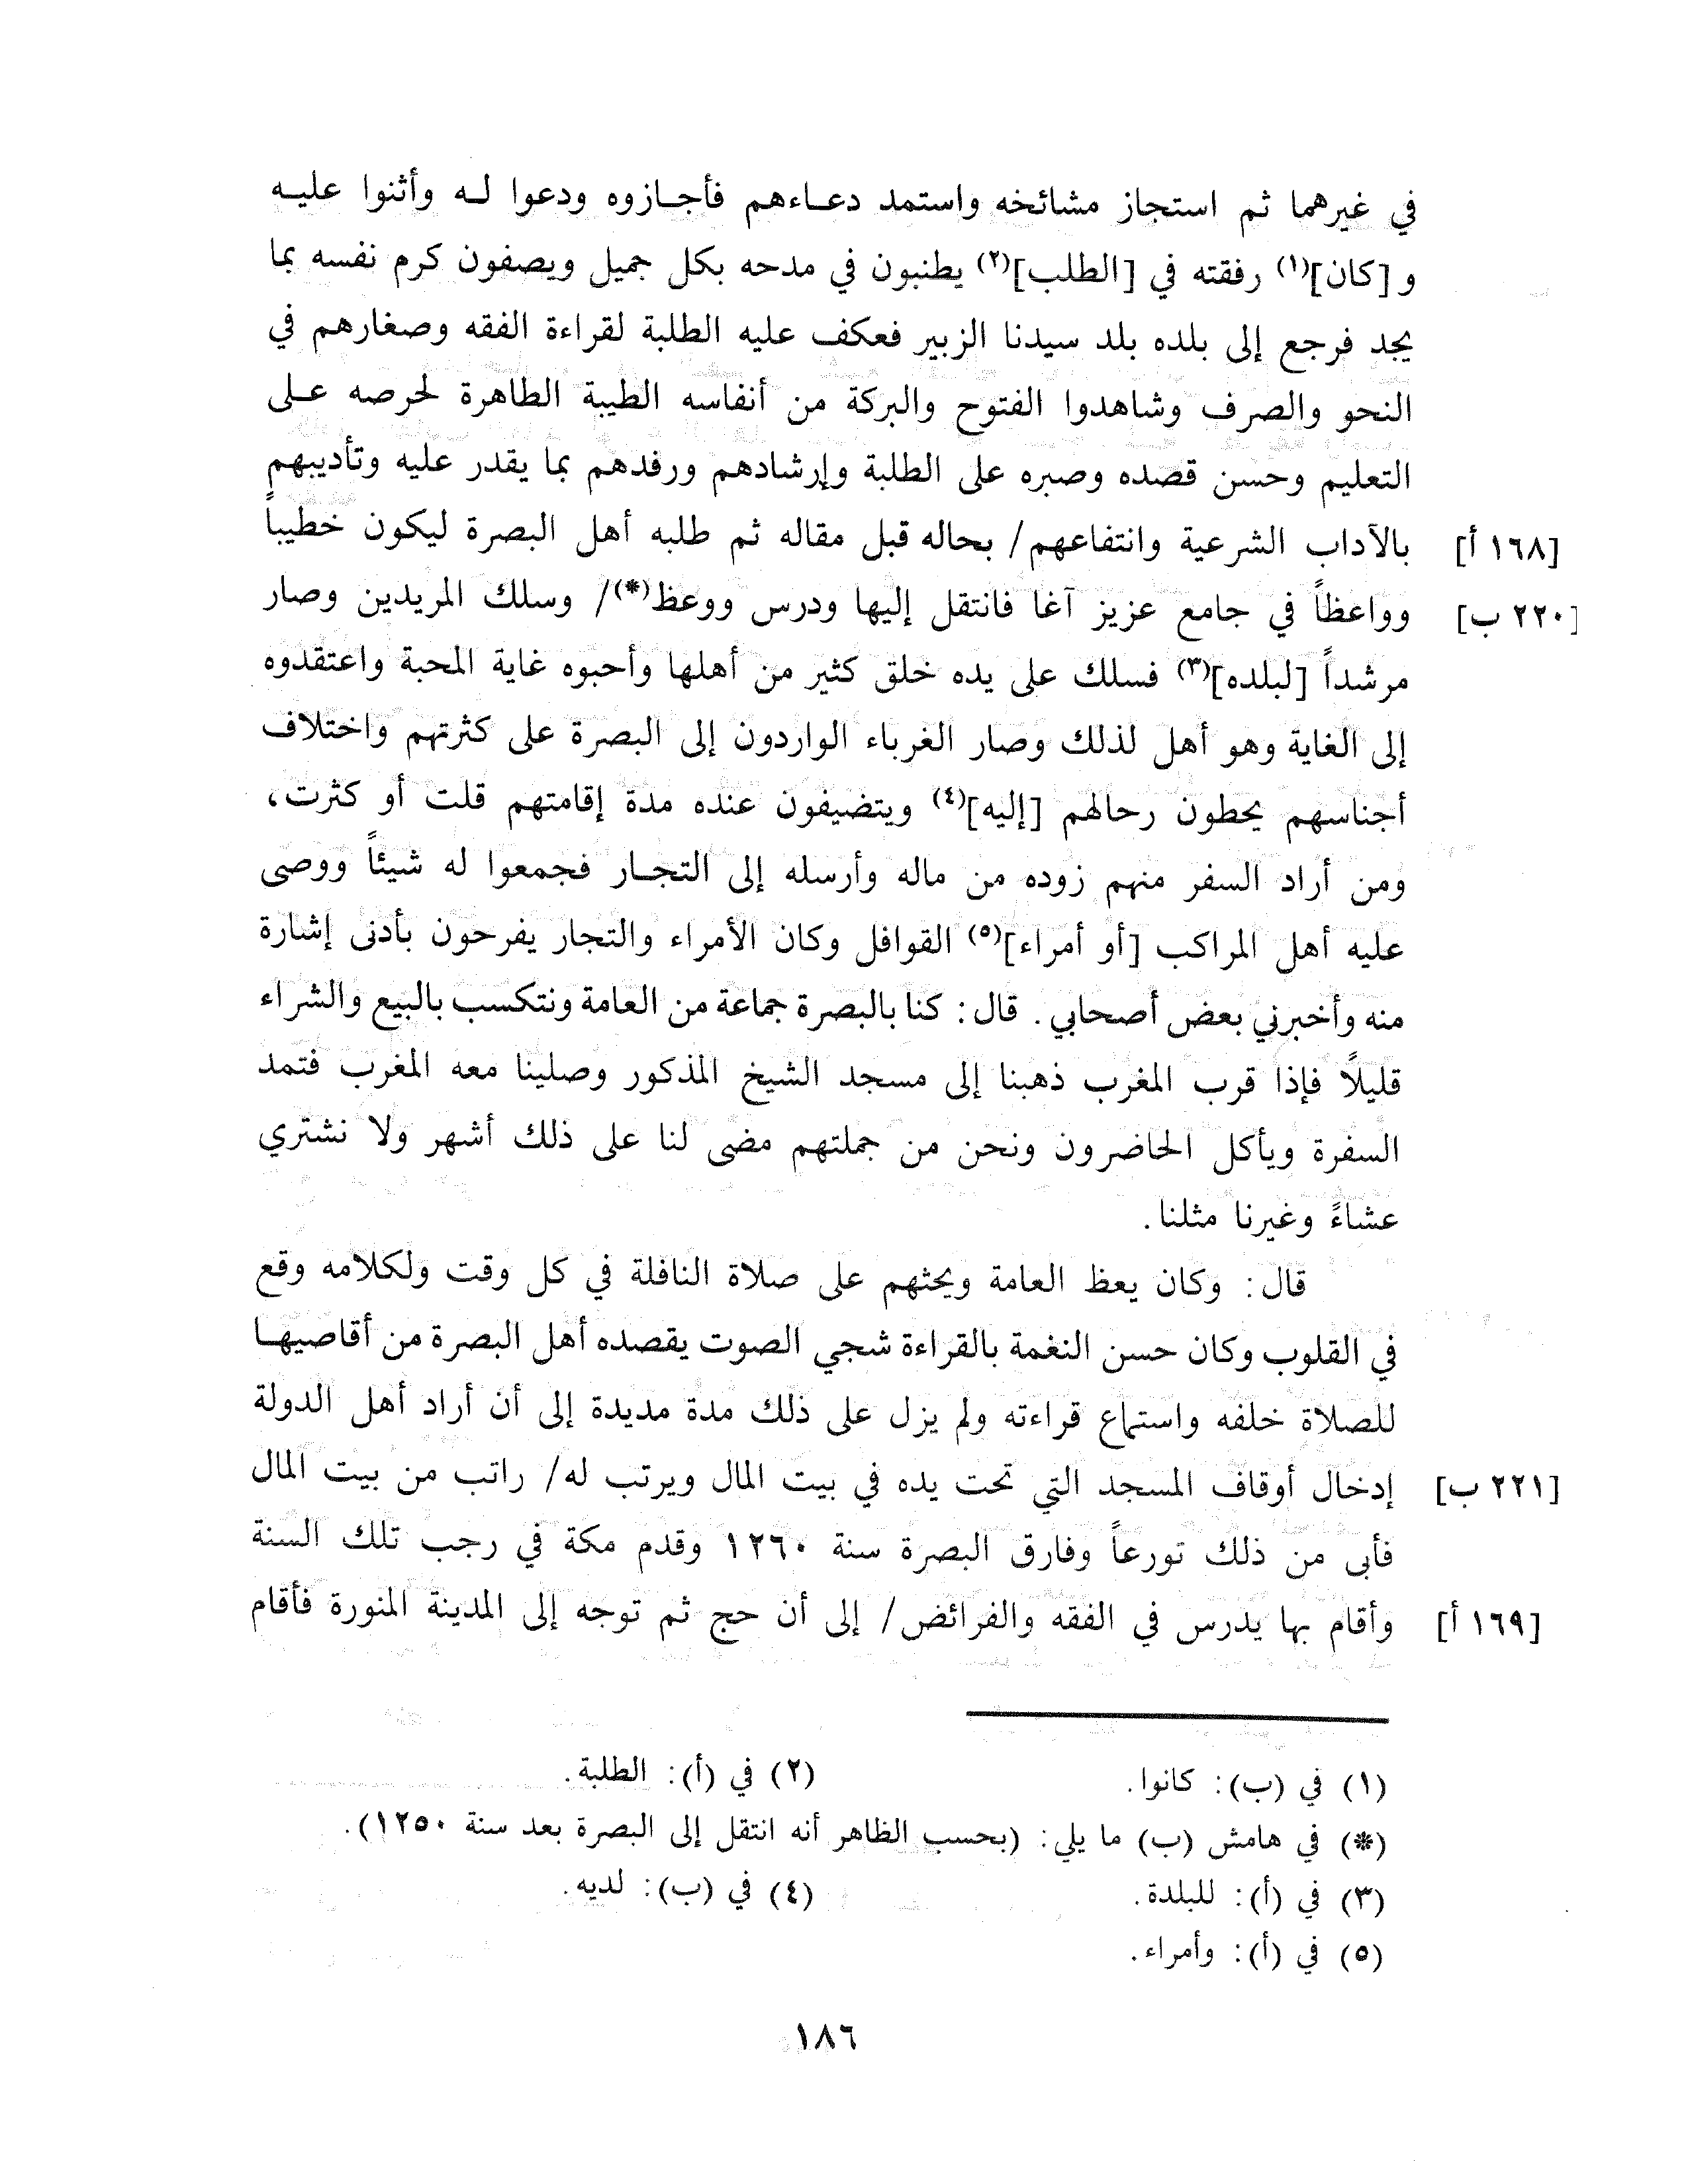 في غيرهما ثم استجاز مشائخه واستمد دعـاءهم فأجـازوه ودعوا لـه وأثنوا عليـه
و [كان](١) رفقته في [الطلب](٢) يطنبون في مدحه بكل جميل ويصفون كرم نفسه بما
يجد فرجع إلى بلده بلد سيدنا الزبير فعكف عليه الطلبة لقراءة الفقه وصغارهم في
النحو والصرف وشاهدوا الفتوح والبركة من أنفاسه الطيبة الطاهرة لحرصه عـلى
التعليم وحسن قصده وصبره على الطلبة وإرشادهم ورفدهم بما يقدر عليه وتأديبهم
[١٦٨ أ] بالآداب الشرعية وانتفاعهم/ بحاله قبل مقاله ثم طلبه أهل البصرة ليكون خطيباً
[٢٢٠ ب] وواعظاً في جامع عزيز آغا فانتقل إليها ودرس ووعظ(*)/ وسلك المريدين وصار
مرشداً [لبلده](٣) فسلك على يده خلق كثير من أهلها وأحبوه غاية المحبة واعتقدوه
إلى الغاية وهو أهل لذلك وصار الغرباء الواردون إلى البصرة على كثرتهم واختلاف
أجناسهم يحطون رحالهم [إليه](٤) ويتضيفون عنده مدة إقامتهم قلت أو كثرت،
ومن أراد السفر منهم زوده من ماله وأرسله إلى التجـار فجمعوا له شيئاً ووصى
عليه أهل المراكب [أو أمراء](٥) القوافل وكان الأمراء والتجار يفرحون بأدنى إشارة
منه وأخبرني بعض أصحابي. قال: كنا بالبصرة جماعة من العامة ونتكسب بالبيع والشراء
قليلاً فإذا قرب المغرب ذهبنا إلى مسجد الشيخ المذكور وصلينا معه المغرب فتمد
السفرة ويأكل الحاضرون ونحن من جملتهم مضى لنا على ذلك أشهر ولا نشتري
عشاءً وغيرنا مثلنا.
قال: وكان يعظ العامة ويحثهم على صلاة النافلة في كل وقت ولكلامه وقع
في القلوب وكان حسن النغمة بالقراءة شجي الصوت يقصده أهل البصرة من أقاصيهـا
للصلاة خلفه واستماع قراءته ولم يزل على ذلك مدة مديدة إلى أن أراد أهل الدولة
[٢٢١ ب] إدخال أوقاف المسجد التي تحت يده في بيت المال ويرتب له/ راتب من بيت المال
فأبى من ذلك تورعاً وفارق البصرة سنة ١٢٦٠ وقدم مكة في رجب تلك السنة
[١٦٩ أ] وأقام بها يدرس في الفقه والفرائض/ إلى أن حج ثم توجه إلى المدينة المنورة فأقام
(١) في (ب): كانوا. (٢) في (أ): الطلبة.
(*) في هامش (ب) ما يلي: (بحسب الظاهر أنه انتقل إلى البصرة بعد سنة ١٢٥٠).
(٣) في (أ): للبلدة. (٤) في (ب): لديه.
(٥) في (أ): وأمراء.
١٨٦